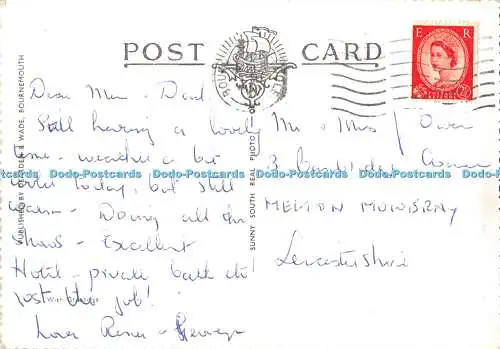 POST CARD
E R
PUBLISHED BY DEARDEN & WADE, BOURNEMOUTH
SUNNY SOUTH REAL PHOTO
Dear Mum & Dad
Still having a lovely
time - weather a bit
today, but still
warm - Doing all the
shows - Excellent
Hotel - private bath etc!
Just the job!
Love &
Mr & Mrs Owen
3
MELTON MOWBRAY
Leicestershire
Dodo-Postcards Dodo-Postcards Dodo-Postcards Dodo-Postcards Dodo-Postcards